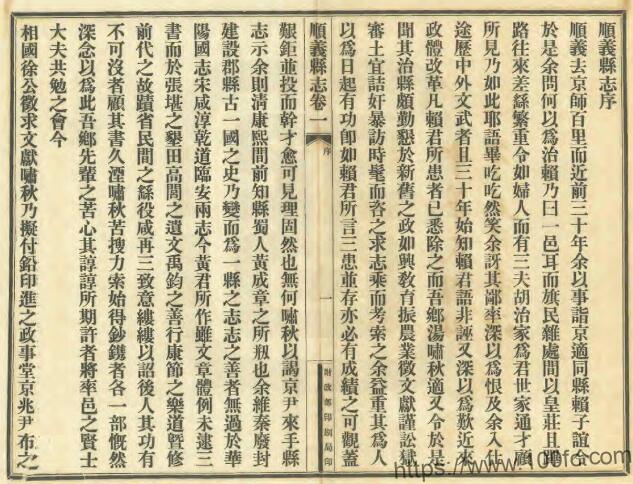 順義縣志序
順義去京師百里而近前三十年余以事詣京適同縣賴子誼令
於是余問何以爲治賴乃曰一邑耳而旗民雜處間以皇莊且卿
路往來差繇繁重令如婦人而有三夫胡治家爲君世家通才顧
所見乃如此耶語畢吃吃然笑余訝其鄙率深以爲恨及余入仕
途歷中外文武者且三十年始知賴君語非誣又深以爲歎近來
政體改革凡賴君所患者已悉除之而吾鄉湯嘯秋適又令於是
聞其治縣頗勤懇於新舊之政如興教育振農業徵文獻謹訟獄
審土宜詰奸暴訪時髦而咨之求志乘而考索之余益重其爲人
以爲日起有功卽如賴君所言三患並存亦必有成績之可觀蓋
順義縣志卷一
序
一
財政部印刷局印
艱鉅並投而幹才愈可見理固然也無何嘯秋以謁京尹來手縣
志示余則淸康熙間前知縣蜀人黃成章之所剏也余維秦廢封
建設郡縣古一國之史乃變而爲一縣之志志之善者無過於華
陽國志宋咸淳乾道臨安兩志今黃君所作雖文章體例未逮三
書而於張堪之墾田高閭之遺文禹鈞之善行康節之樂道曁修
前代之故蹟省民間之繇役咸再三致意縷縷以詔後人其功有
不可沒者顧其書久湮嘯秋苦搜力索始得鈔鐫者各一部慨然
深念以爲此吾鄉先輩之苦心其諄諄所期許者將率邑之賢士
大夫共勉之會今
相國徐公徵求文獻嘯秋乃擬付鉛印進之政事堂京兆尹布之
https://www.100fc.com